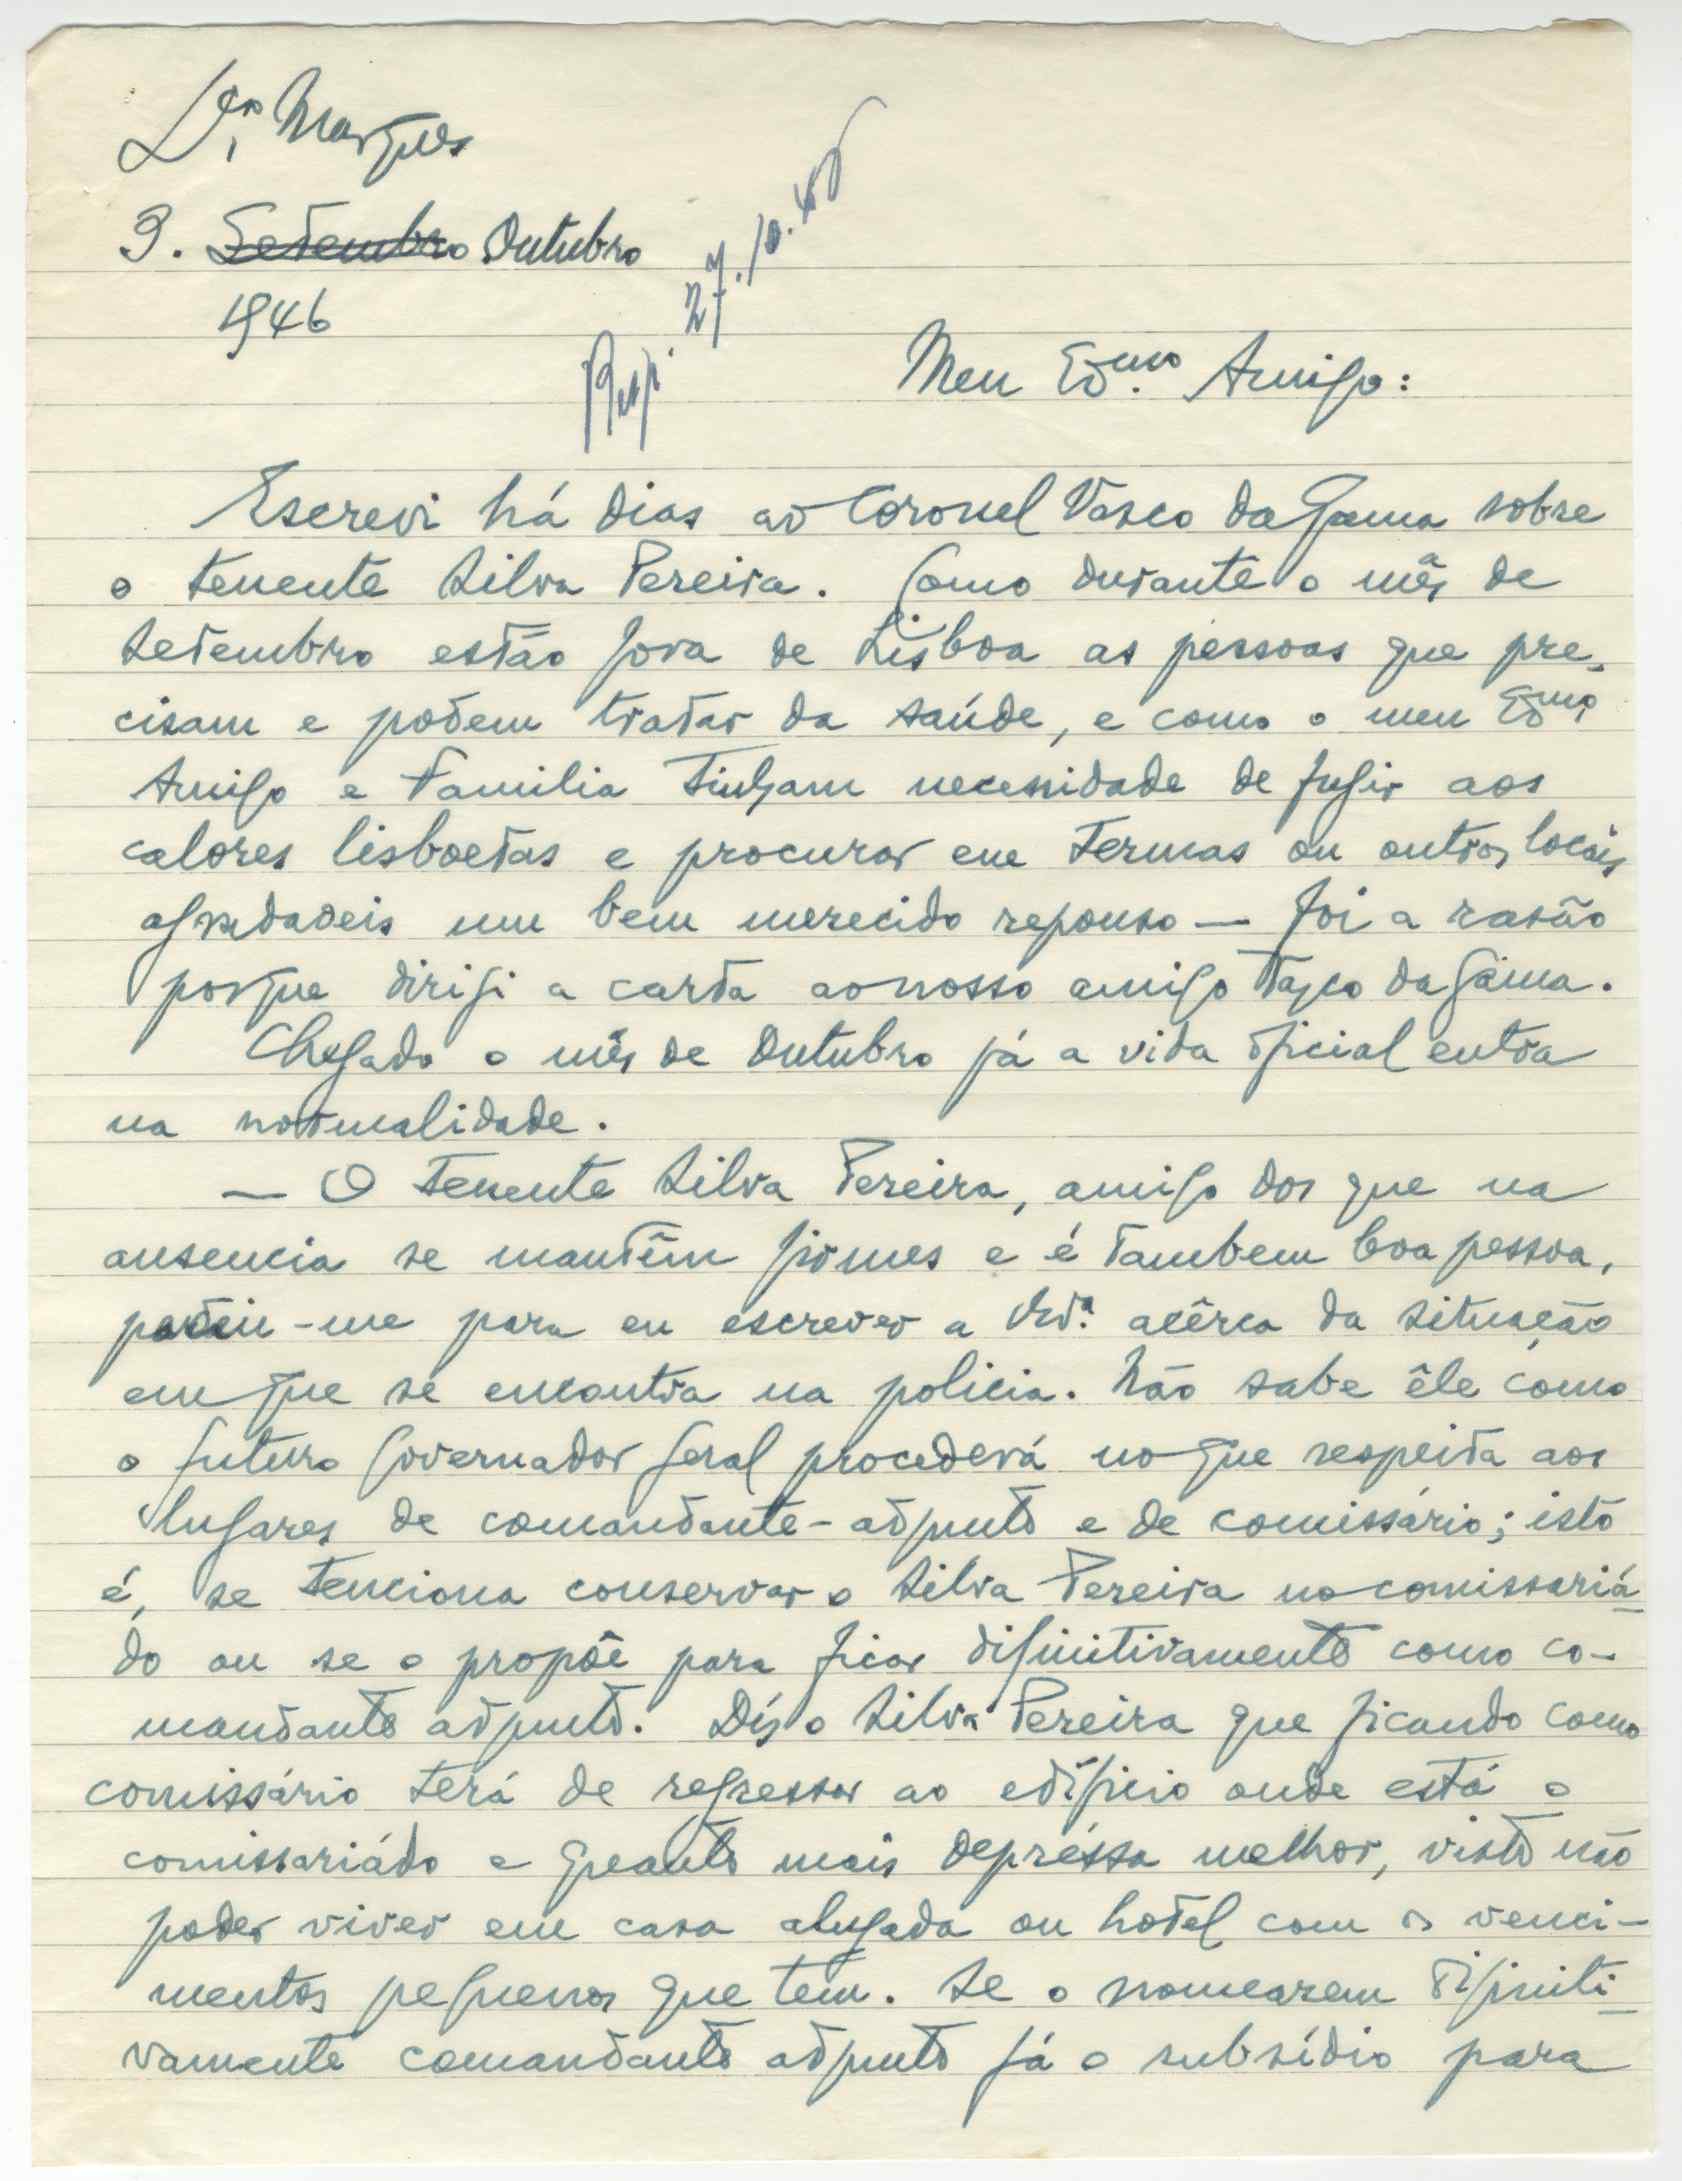 Dr. Marques
3. Setembro Outubro
1946
Resp. 27.10.46
Meu Exmo. Amigo:
Escrevi há dias ao Coronel Vasco da Gama sobre
o tenente Silva Pereira. Como durante o mês de
Setembro estão fora de Lisboa as pessoas que pre-
cisam e podem tratar da saúde, e como o meu Exmo.
Amigo e Familia tinham necessidade de fugir aos
calores lisboetas e procurar em termas ou outros locais
agradaveis um bem merecido repouso — foi a rasão
porque dirigi a carta ao nosso amigo Vasco da Gama.
Chegado o mês de Outubro já a vida oficial entra
na normalidade.
— O tenente Silva Pereira, amigo dos que na
ausencia se mantêm firmes e é tambem boa pessoa,
pediu-me para eu escrever a acêrca da situação
em que se encontra na policia. Não sabe êle como
o futuro Governador Geral procederá no que respeita aos
lugares de comandante-adjunto e de comissário; isto
é, se tenciona conservar o Silva Pereira no comissariá-
do ou se o propõe para ficar difinitivamente como co-
mandante adjunto. Diz o Silva Pereira que ficando como
comissário terá de regressar ao edifício onde está o
comissariádo e quanto mais depréssa melhor, visto não
poder viver em casa alugada ou hotel com os venci-
mentos pequenos que tem. Se o nomearem difiniti-
vamente comandante adjunto já o subsídio para